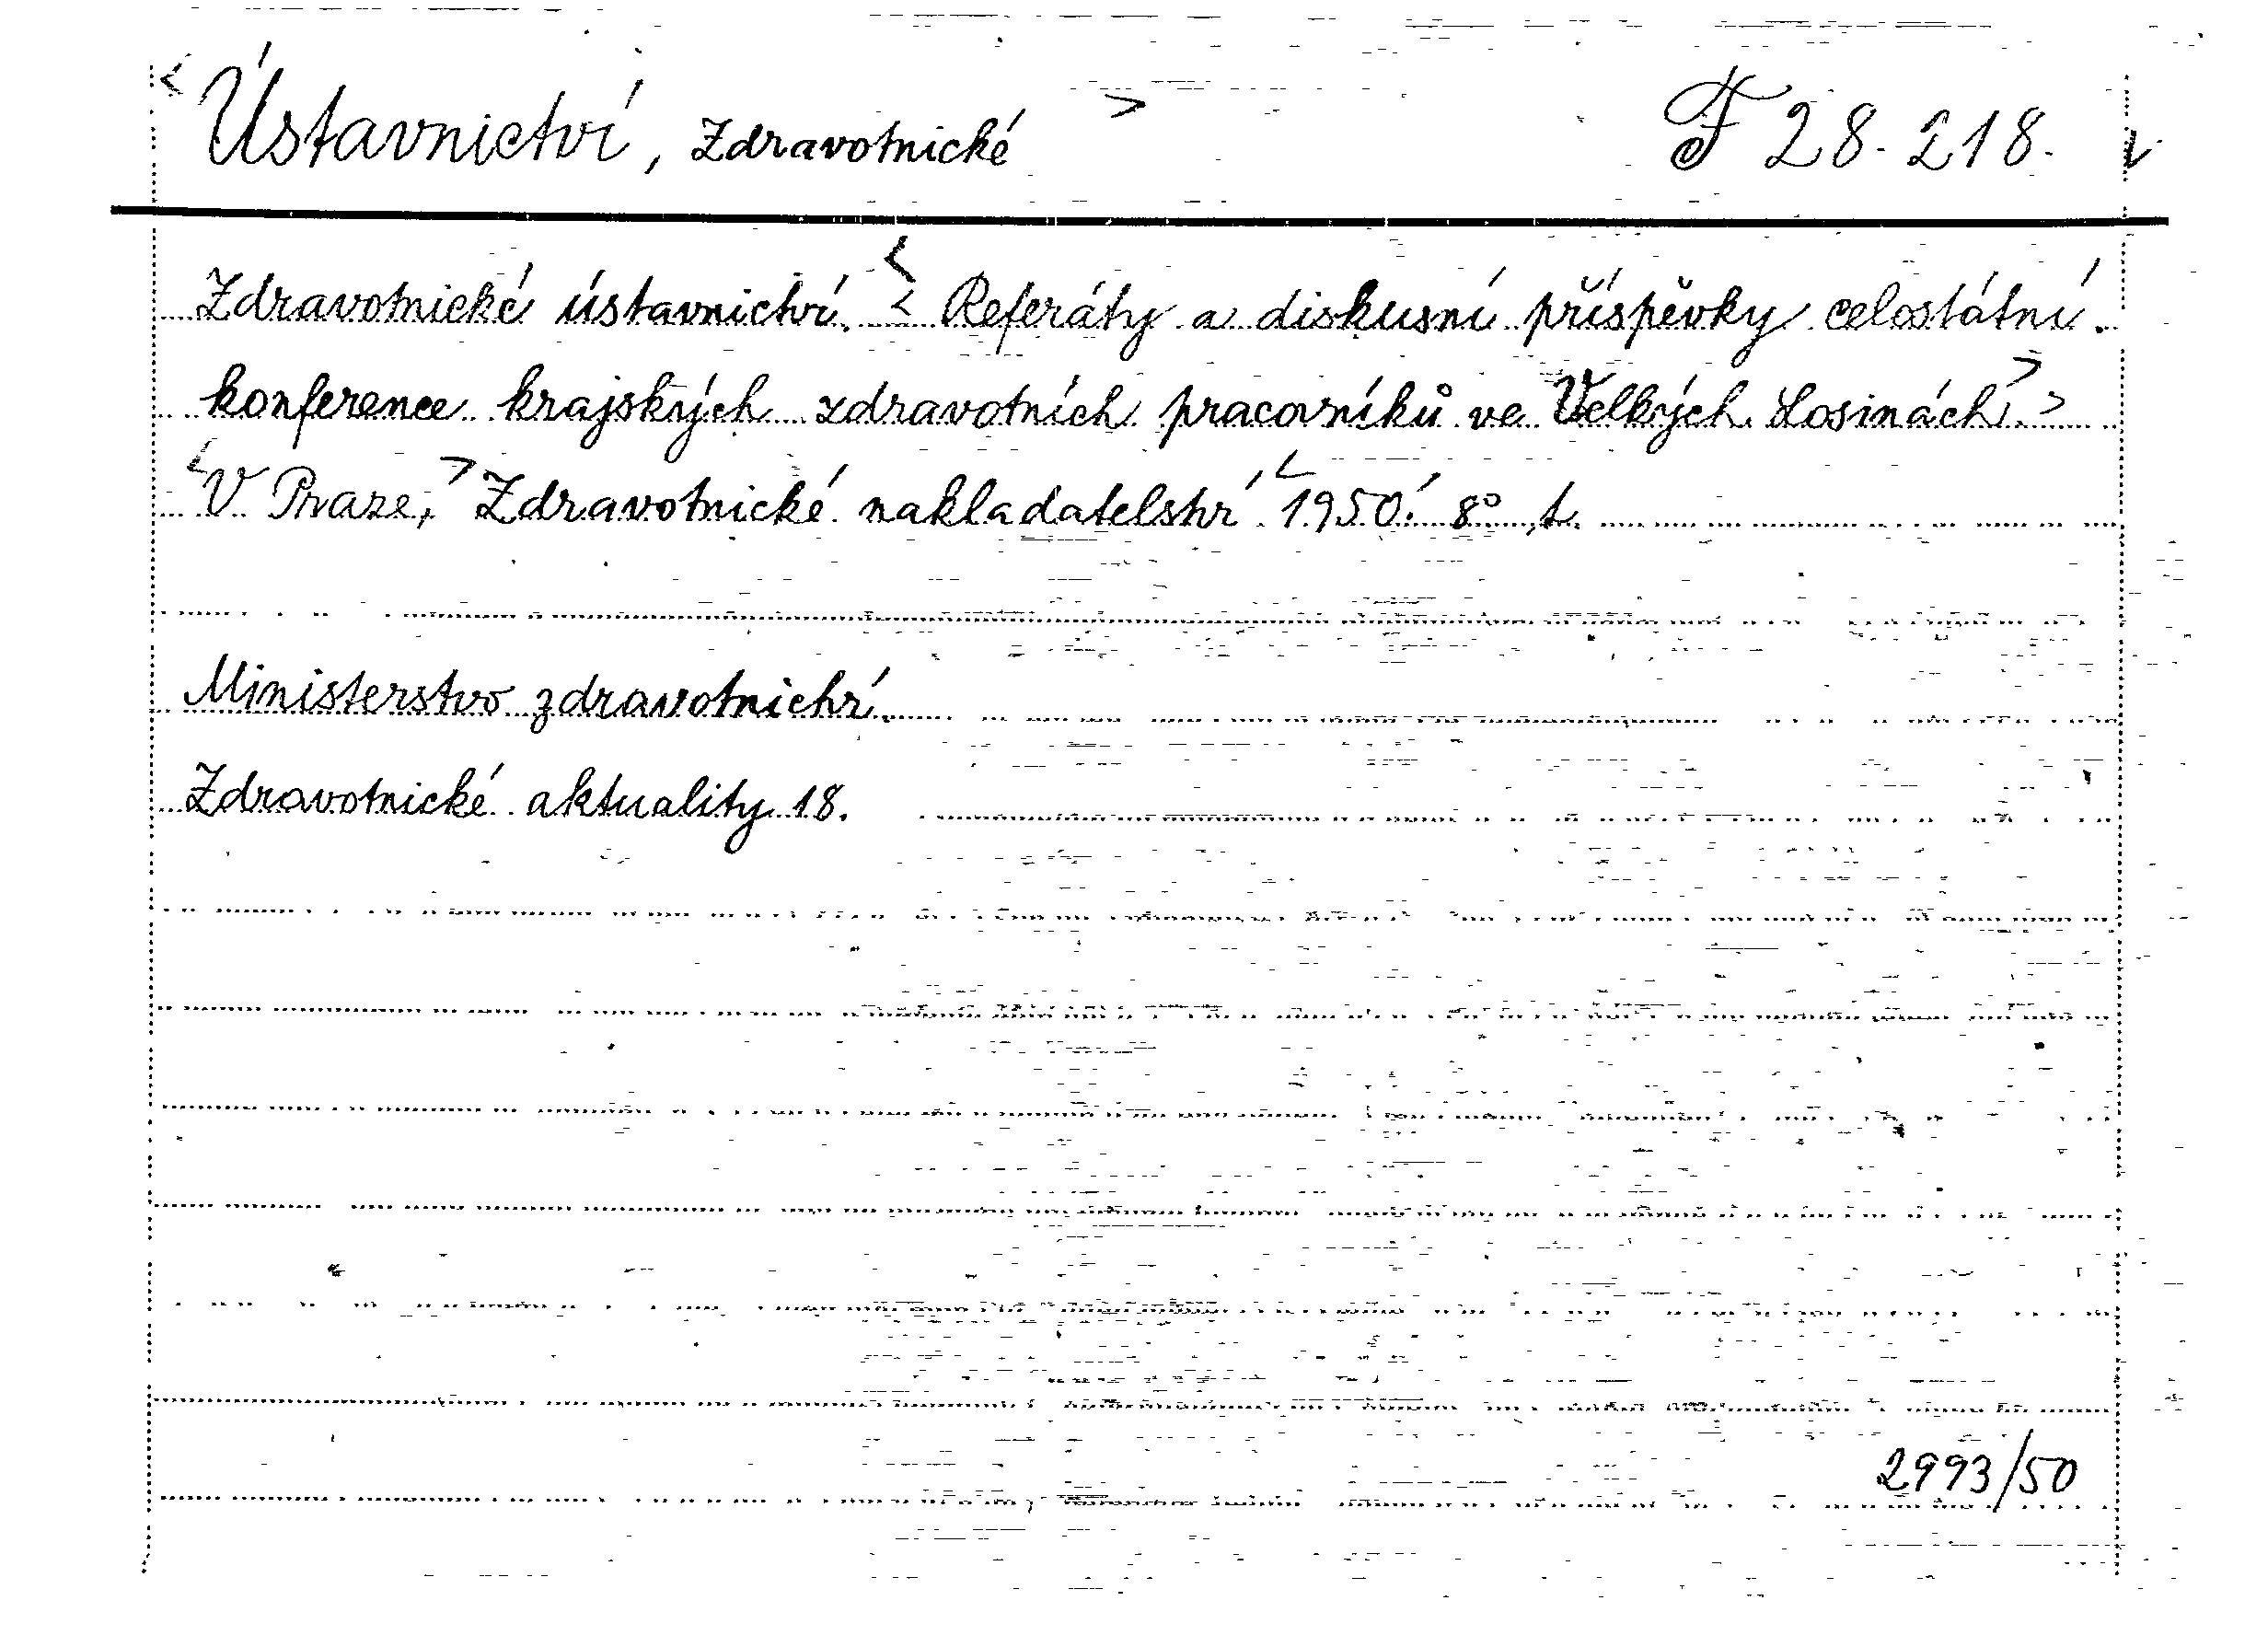 < Ústavnictví, Zdravotnické > F 28.218. v
Zdravotnické ústavnictví. < Referáty a diskusní příspěvky celostátní
konference krajských zdravotních pracovníků ve Velkých Losinách. >
< V Praze, > Zdravotnické nakladatelství < 1950. 8° t.
Ministerstvo zdravotnictví.
Zdravotnické aktuality 18.
2993/50